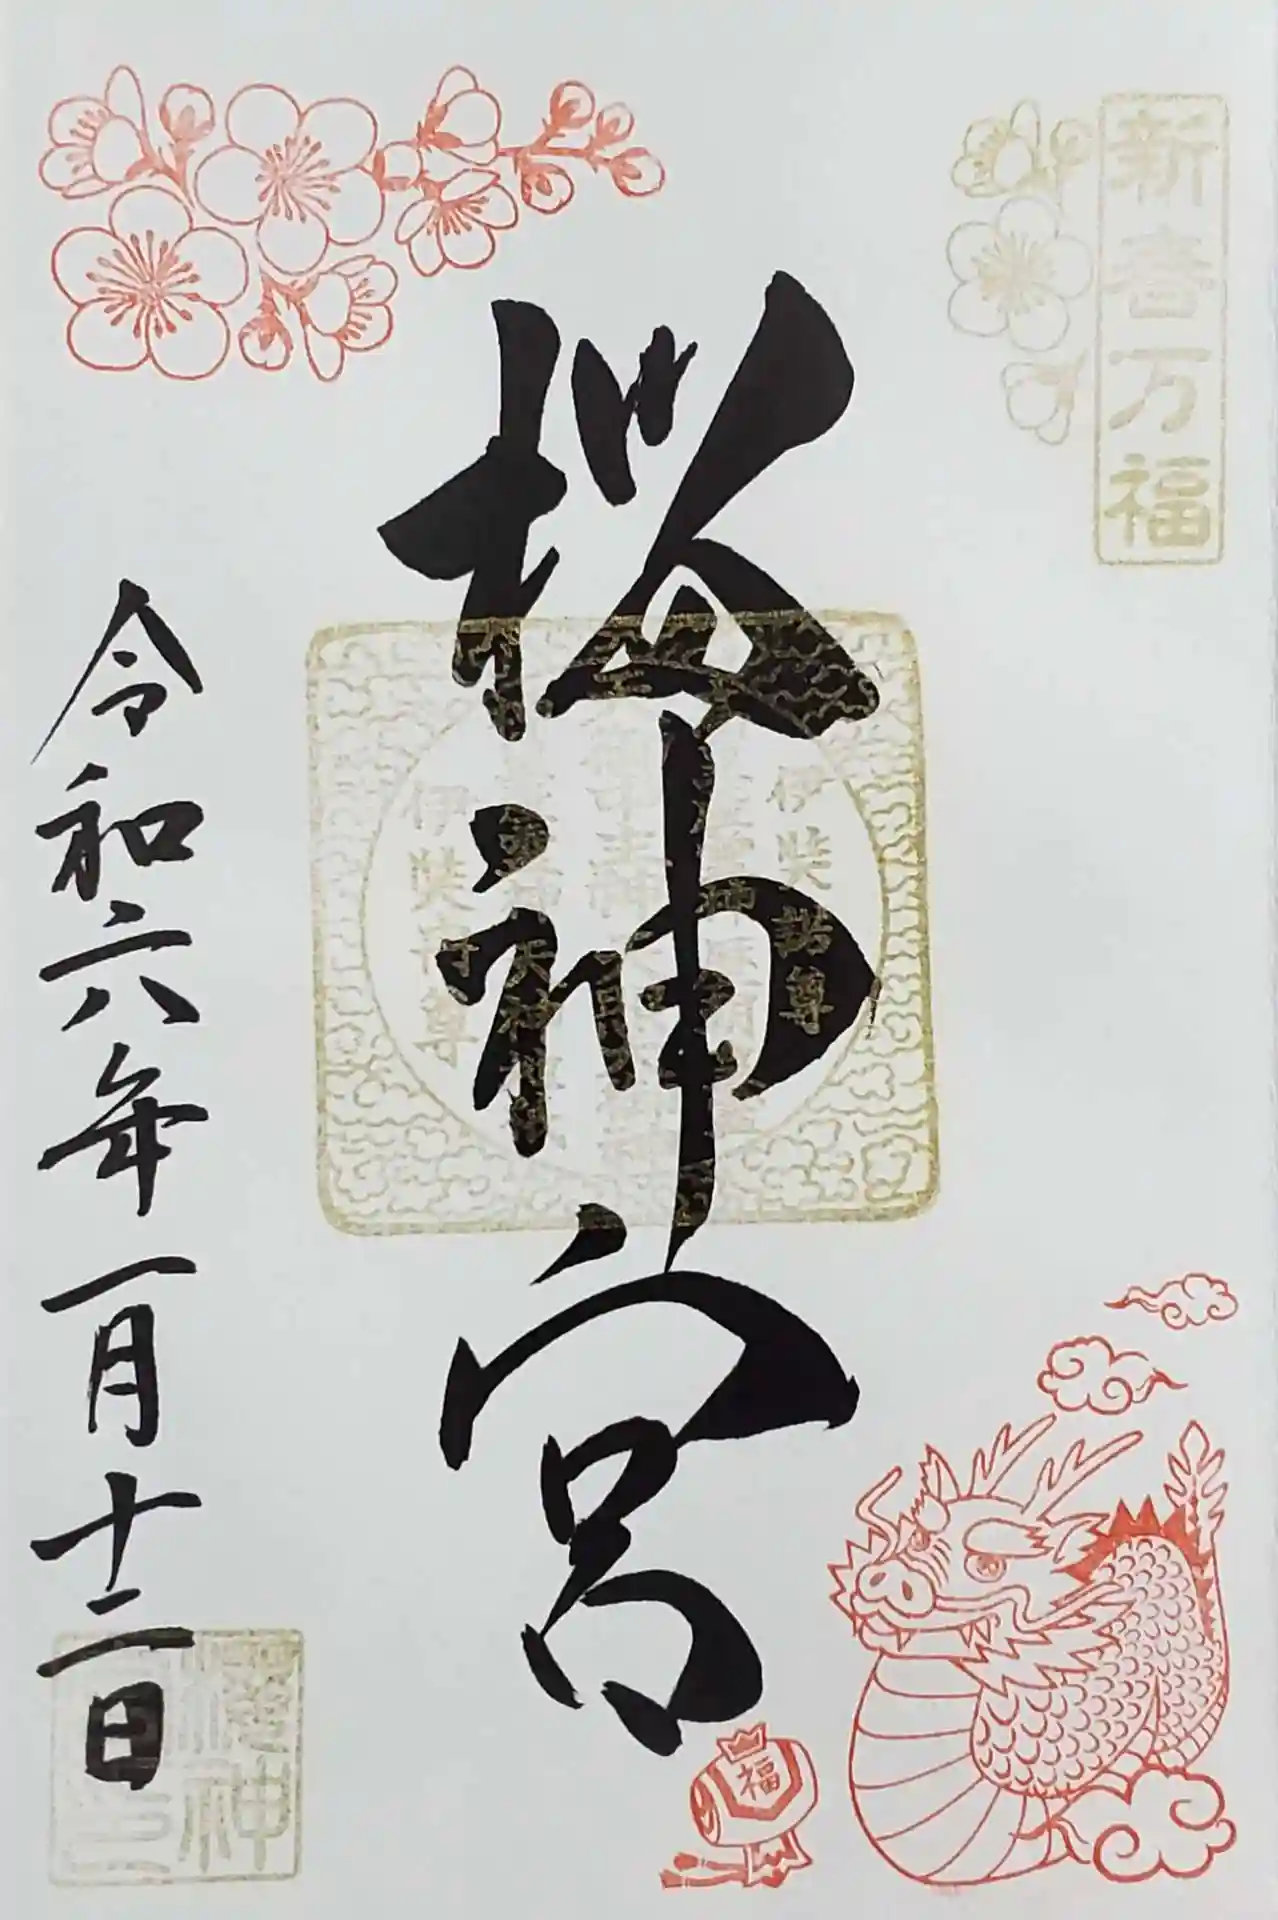 新春万福
桜神宮
伊奘諾尊
伊奘冉尊
令和六年一月十二日
福